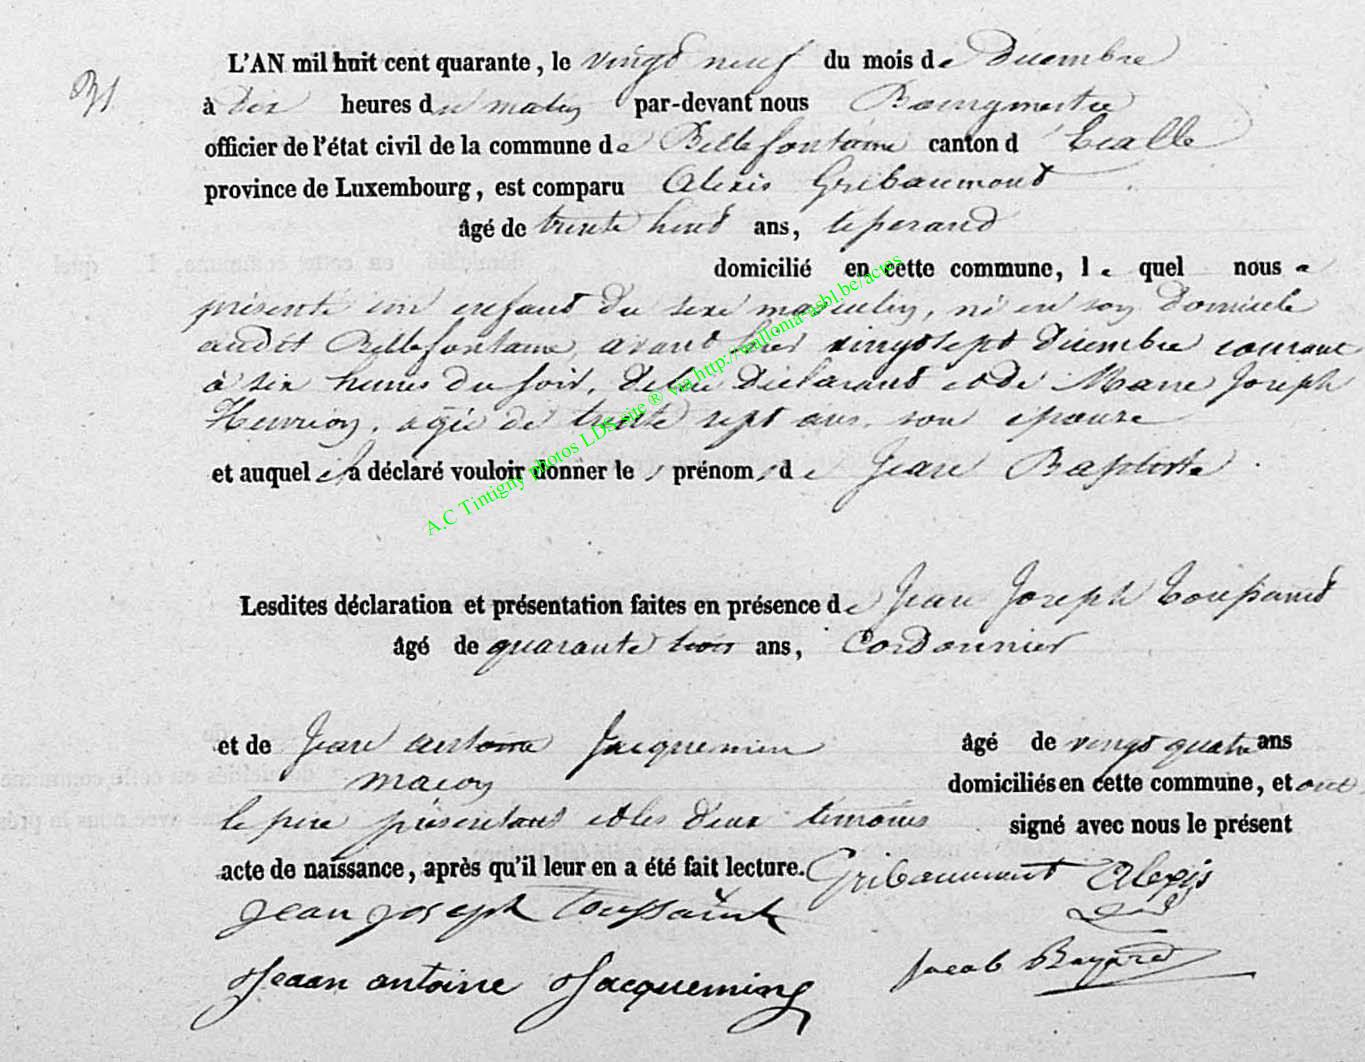 31
L'AN mil huit cent quarante, le vingt neuf du mois de Décembre
à dix heures du matin par-devant nous Bourgmestre
officier de l'état civil de la commune de Bellefontaine canton d'Etalle
province de Luxembourg, est comparu Alexis Gribaumont
âgé de trente huit ans,
domicilié en cette commune, le quel nous a
présenté un enfant du sexe masculin, né en son domicile
audit Bellefontaine, avant hier vingt sept Décembre courant
à six heures du soir, de lui Déclarant et de Marie Joseph
Henrion, agée de trente sept ans, son épouse
et auquel il a déclaré vouloir donner les prénoms de Jean Baptiste.
Lesdites déclaration et présentation faites en présence de Jean Joseph Toussaint
âgé de quarante trois ans, Cordonnier
et de Jean antoine Jacquemin âgé de vingt quatre ans
macon domiciliés en cette commune, et ont
le père présentant et les deux témoins signé avec nous le présent
acte de naissance, après qu'il leur en a été fait lecture. Gribaumont Alexis
Jean joseph Toussaint
Jeaan antoine Jacqueming Jacob Bayard
A.C Tintigny photos LDS site ® via http://wallonia-asbl.be/actes